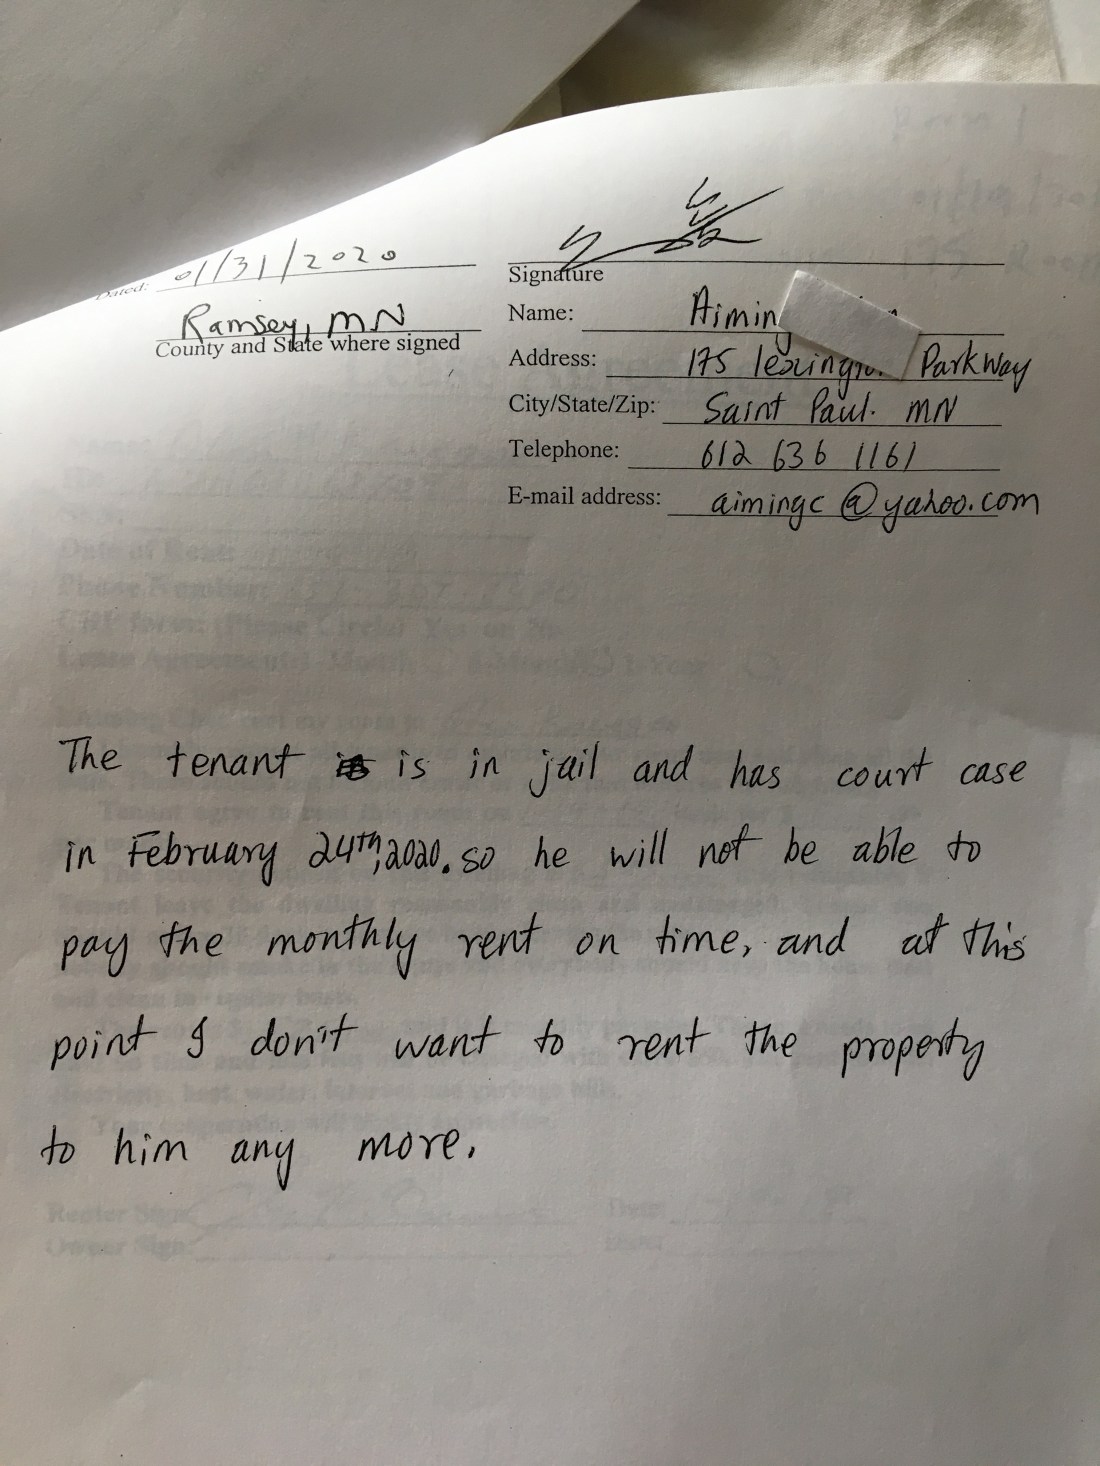 Dated: 01/31/2020
Ramsey, MN
County and State where signed
Signature
Name: Aimin
Address: 175 lexington Parkway
City/State/Zip: Saint Paul. MN
Telephone: 612 636 1161
E-mail address: aimingc@yahoo.com
The tenant is in jail and has court case
in February 24th, 2020. so he will not be able to
pay the monthly rent on time, and at this
point I don't want to rent the property
to him any more.